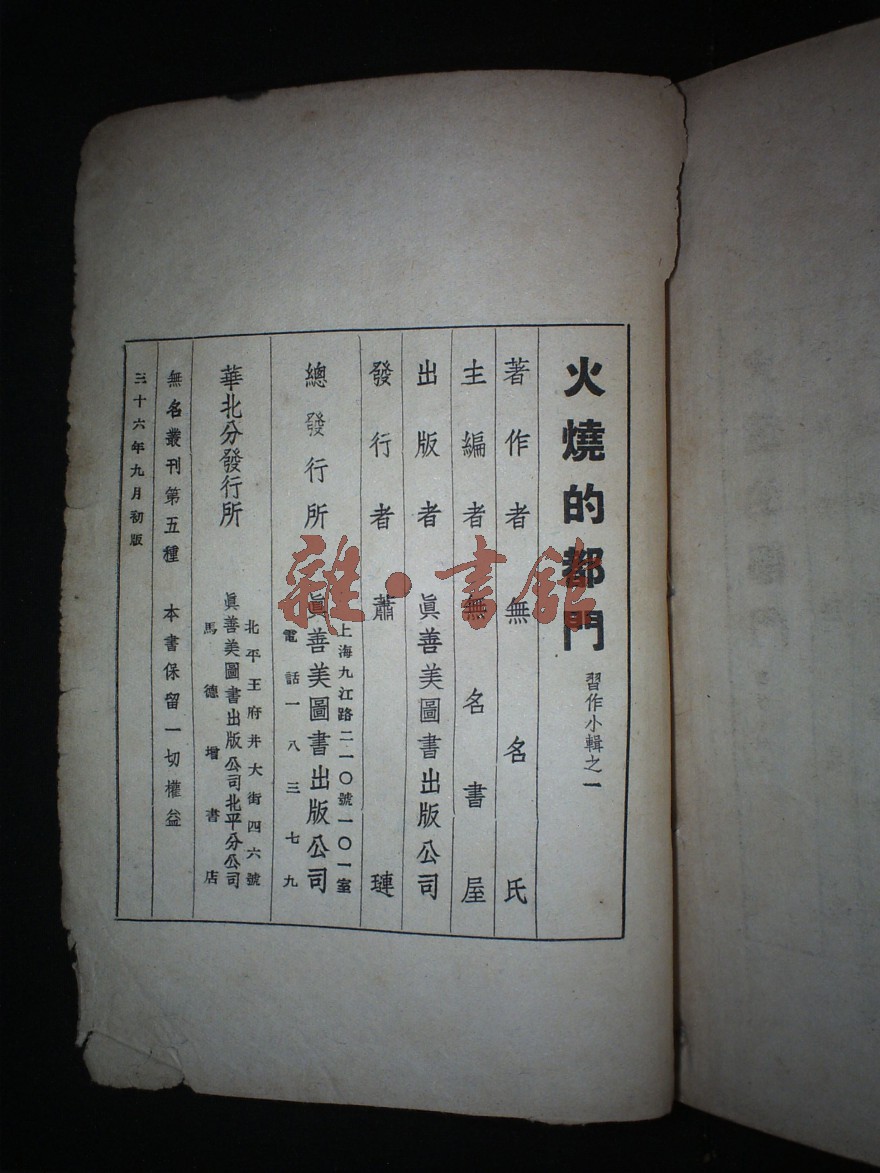 火燒的都門 習作小輯之一
著作者 無名氏
主編者 無名書屋
出版者 眞善美圖書出版公司
發行者 蕭 璉
總發行所
上海九江路二一〇號一〇一室
眞善美圖書出版公司
電話一八三七九
華北分發行所
北平王府井大街四六號
眞善美圖書出版公司北平分公司
馬德增書店
無名叢刊第五種 本書保留一切權益
三十六年九月初版
雜·書館